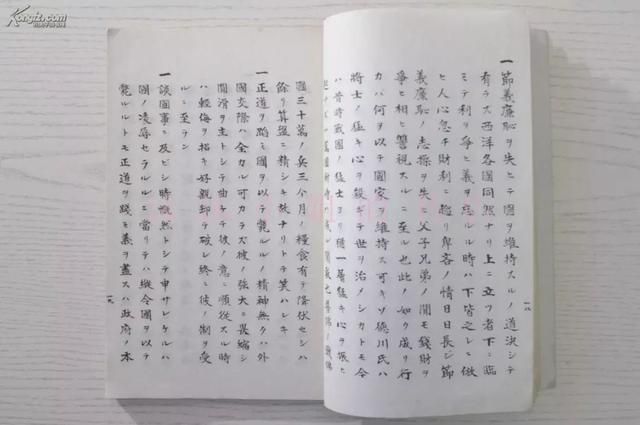 一節義廉恥ヲ失ヒテ國ヲ維持スルノ道決シテ
有ラズ西洋各國同然ナリ上ニ立ツ者下ニ臨
ミテ利ヲ爭ヒ義ヲ忘ルル時ハ下皆之レニ倣
ヒ人心忽チ財利ニ趨リ卑吝ノ情日日長ジ節
義廉恥ノ志操ヲ失ヒ父子兄弟ノ間モ錢財ヲ
爭ヒ相ヒ讐視スルニ至ル也此ノ如ク成リ行
カバ何ヲ以テ國家ヲ維持ス可キゾ德川氏ハ
將士ノ猛キ心ヲ殺ギテ世ヲ治メシカトモ今
ハ昔時戰國ノ猛士ヨリ猶一層猛キ心ヲ振ヒ
起サズバ萬國對峙ハ成ル間敷也普佛ノ戰佛
一八
國三十萬ノ兵三ケ月ノ糧食有テ降伏セシハ
餘リ算盤ニ精シキ故ナリトテ笑ハレキ
一正道ヲ踏ミ國ヲ以テ斃ルルノ精神無クハ外
國交際ハ全カル可カラズ彼ノ強大ニ畏縮シ
圓滑ヲ主トシテ曲ケテ彼ノ意ニ順從スル時
ハ輕侮ヲ招キ好親却テ破レ終ニ彼ノ制ヲ受
ルニ至ラン
一談國事ニ及ビシ時慨然トシテ申サレケルハ
國ノ凌辱セラルルニ當リテハ縱令國ヲ以テ
斃ルルトモ正道ヲ踐ミ義ヲ盡スハ政府ノ本
一九
Kongfz.com